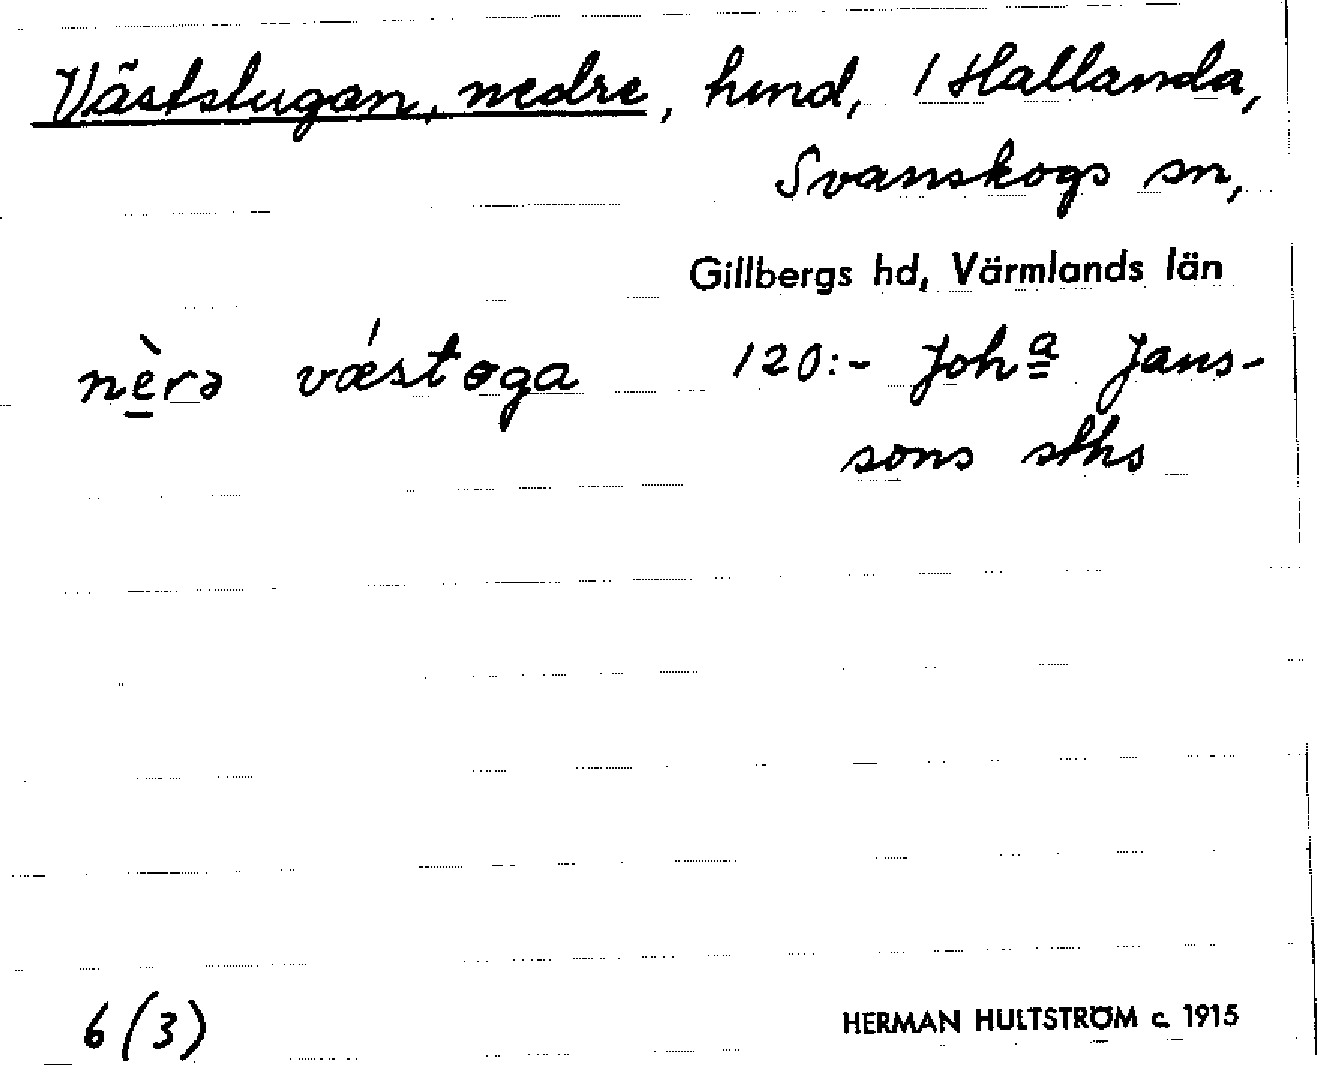 Västslugan, nedre, hmd, 1 Hallanda,
Svanskogs sn,
Gillbergs hd, Värmlands län
nè̠rə vǽstɵga 120:- Joh͟a Jans-
sons sths
6 (3)
HERMAN HULTSTRÖM c. 1915